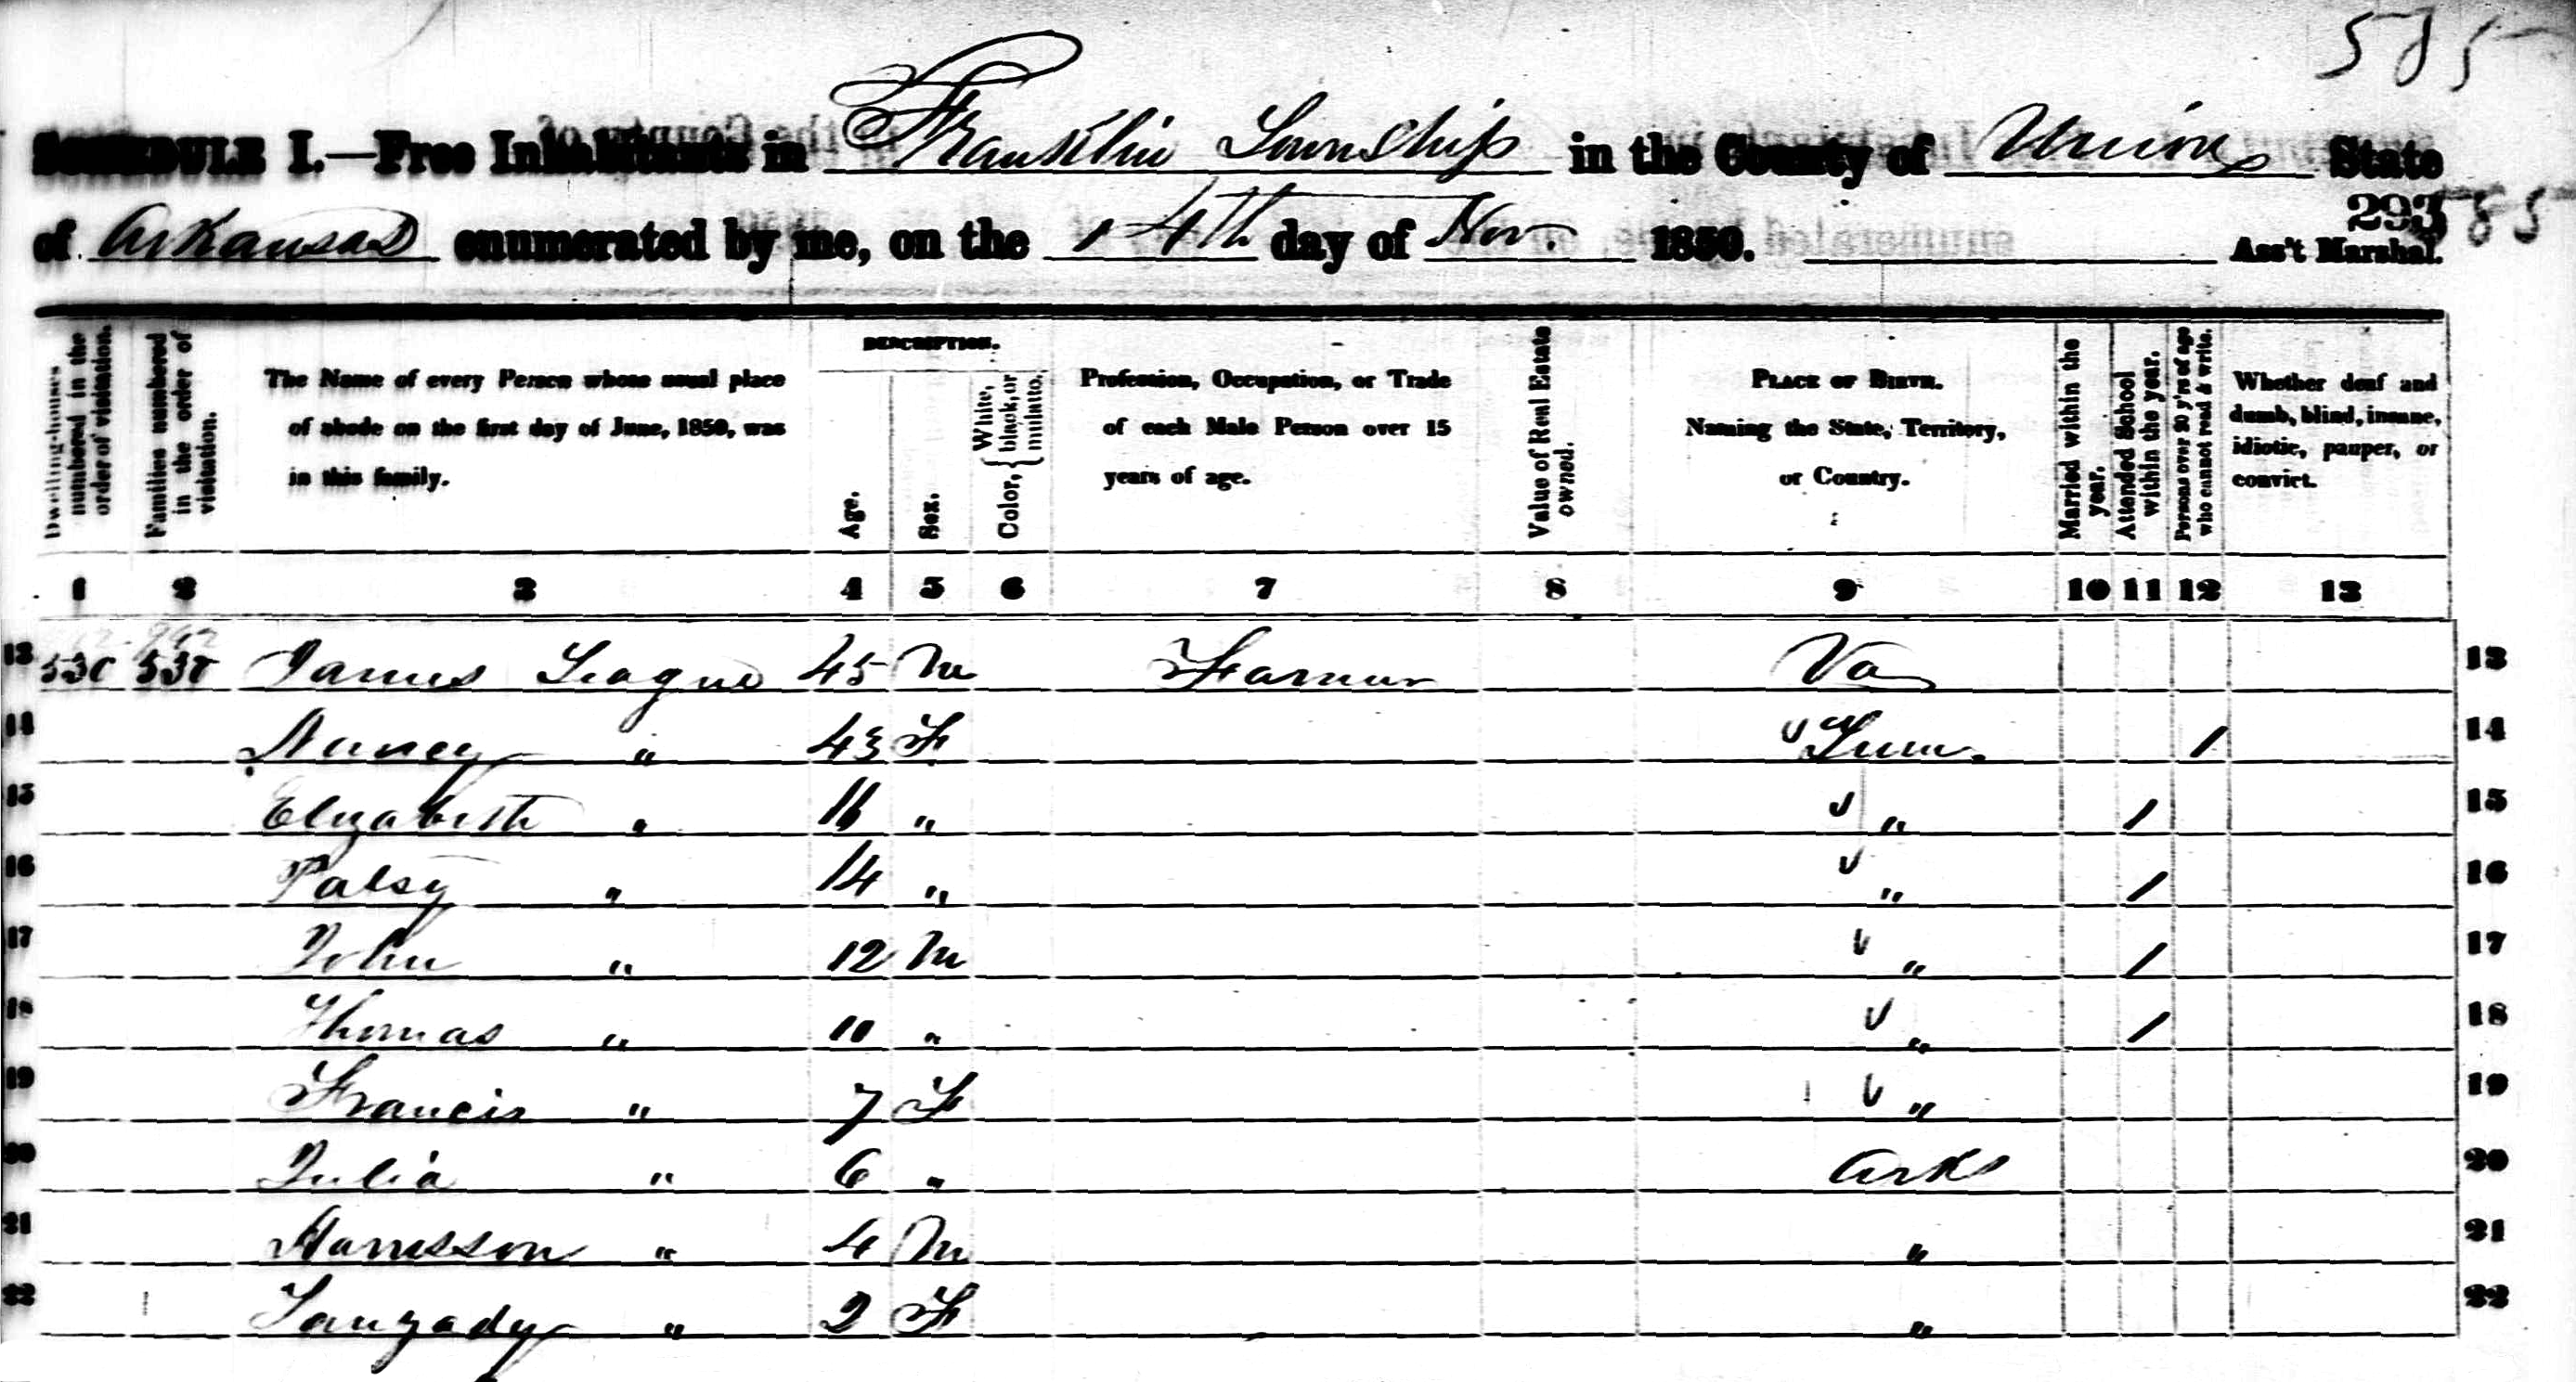 585
SCHEDULE I.—Free Inhabitants in Franklin Township in the County of Union State
of Arkansas enumerated by me, on the 14th day of Nov. 1850. Ass't Marshal.
293 585
Dwelling-houses numbered in the order of visitation.
Families numbered in the order of visitation.
The Name of every Person whose usual place of abode on the first day of June, 1850, was in this family.
DESCRIPTION.
Age.
Sex.
Color, { White, black, or mulatto.
Profession, Occupation, or Trade of each Male Person over 15 years of age.
Value of Real Estate owned.
PLACE OF BIRTH. Naming the State, Territory, or Country.
Married within the year.
Attended School within the year.
Persons over 20 y'rs of age who cannot read & write.
Whether deaf and dumb, blind, insane, idiotic, pauper, or convict.
1 2 3 4 5 6 7 8 9 10 11 12 13
13 530 530 James League 45 M Farmer Va 13
14 Nancy " 43 F Tenn. 1 14
15 Elizabeth " 16 " " 1 15
16 Patsy " 14 " " 1 16
17 John " 12 M " 1 17
18 Thomas " 10 " " 1 18
19 Francis " 7 F " 19
20 Julia " 6 " Arks 20
21 Harrisson " 4 M " 21
22 " 2 F " 22